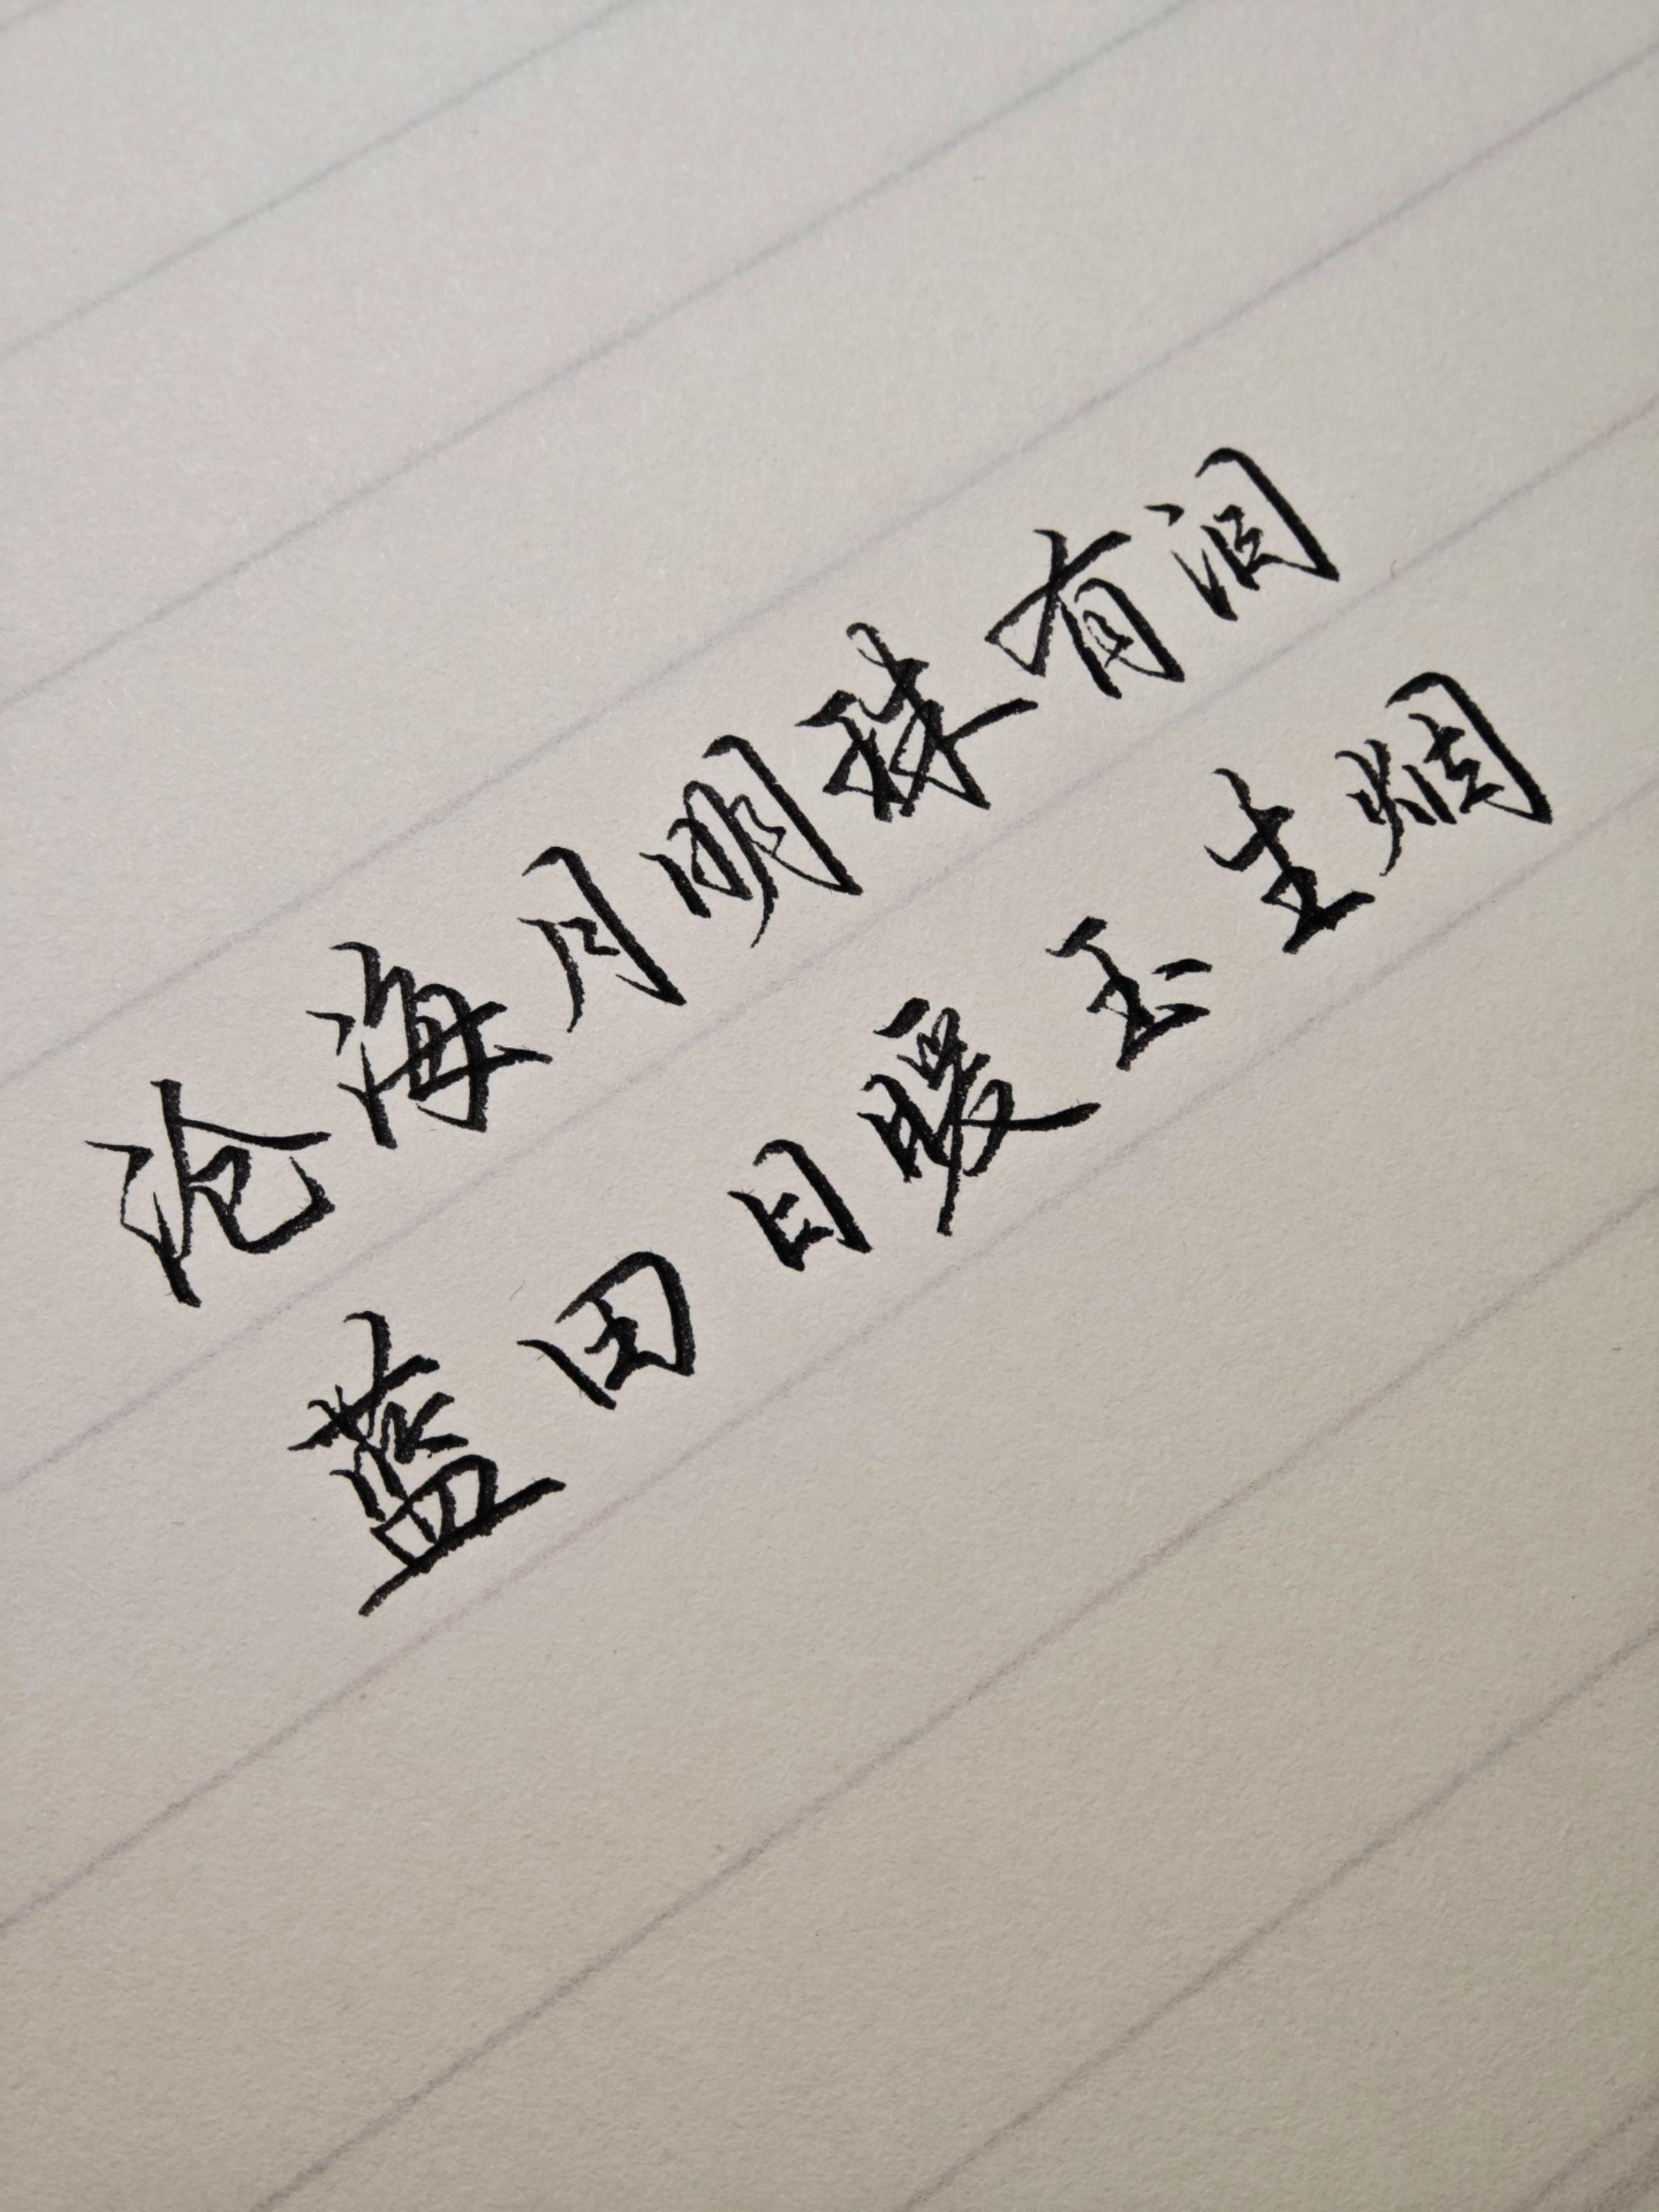 沧海月明珠有泪
蓝田日暖玉生烟